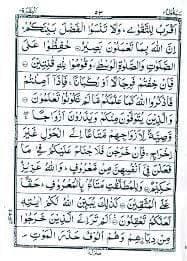 ٥٣
اَقْرَبُ لِلتَّقْوٰى ؕ وَلَا تَنْسَوُا الْفَضْلَ بَيْنَكُمْ ؕ
اِنَّ اللهَ بِمَا تَعْمَلُوْنَ بَصِيْرٌ حٰفِظُوْا عَلَى
الصَّلَوٰتِ وَالصَّلٰوةِ الْوُسْطٰى وَقُوْمُوْا لِلّٰهِ قٰنِتِيْنَ
فَاِنْ خِفْتُمْ فَرِجَالًا اَوْ رُكْبَانًا ۚ فَاِذَاۤ اَمِنْتُمْ
فَاذْكُرُوا اللهَ كَمَا عَلَّمَكُمْ مَّا لَمْ تَكُوْنُوْا تَعْلَمُوْنَ
وَالَّذِيْنَ يُتَوَفَّوْنَ مِنْكُمْ وَيَذَرُوْنَ اَزْوَاجًا
وَّصِيَّةً لِّاَزْوَاجِهِمْ مَّتَاعًا اِلَى الْحَوْلِ غَيْرَ
اِخْرَاجٍ ۚ فَاِنْ خَرَجْنَ فَلَا جُنَاحَ عَلَيْكُمْ فِيْ مَا
فَعَلْنَ فِيْۤ اَنْفُسِهِنَّ مِنْ مَّعْرُوْفٍ ؕ وَاللهُ عَزِيْزٌ
حَكِيْمٌ وَلِلْمُطَلَّقٰتِ مَتَاعٌۢ بِالْمَعْرُوْفِ ؕ حَقًّا
عَلَى الْمُتَّقِيْنَ كَذٰلِكَ يُبَيِّنُ اللهُ لَكُمْ اٰيٰتِهٖ
لَعَلَّكُمْ تَعْقِلُوْنَ اَلَمْ تَرَ اِلَى الَّذِيْنَ خَرَجُوْا
مِنْ دِيَارِهِمْ وَهُمْ اُلُوْفٌ حَذَرَ الْمَوْتِ